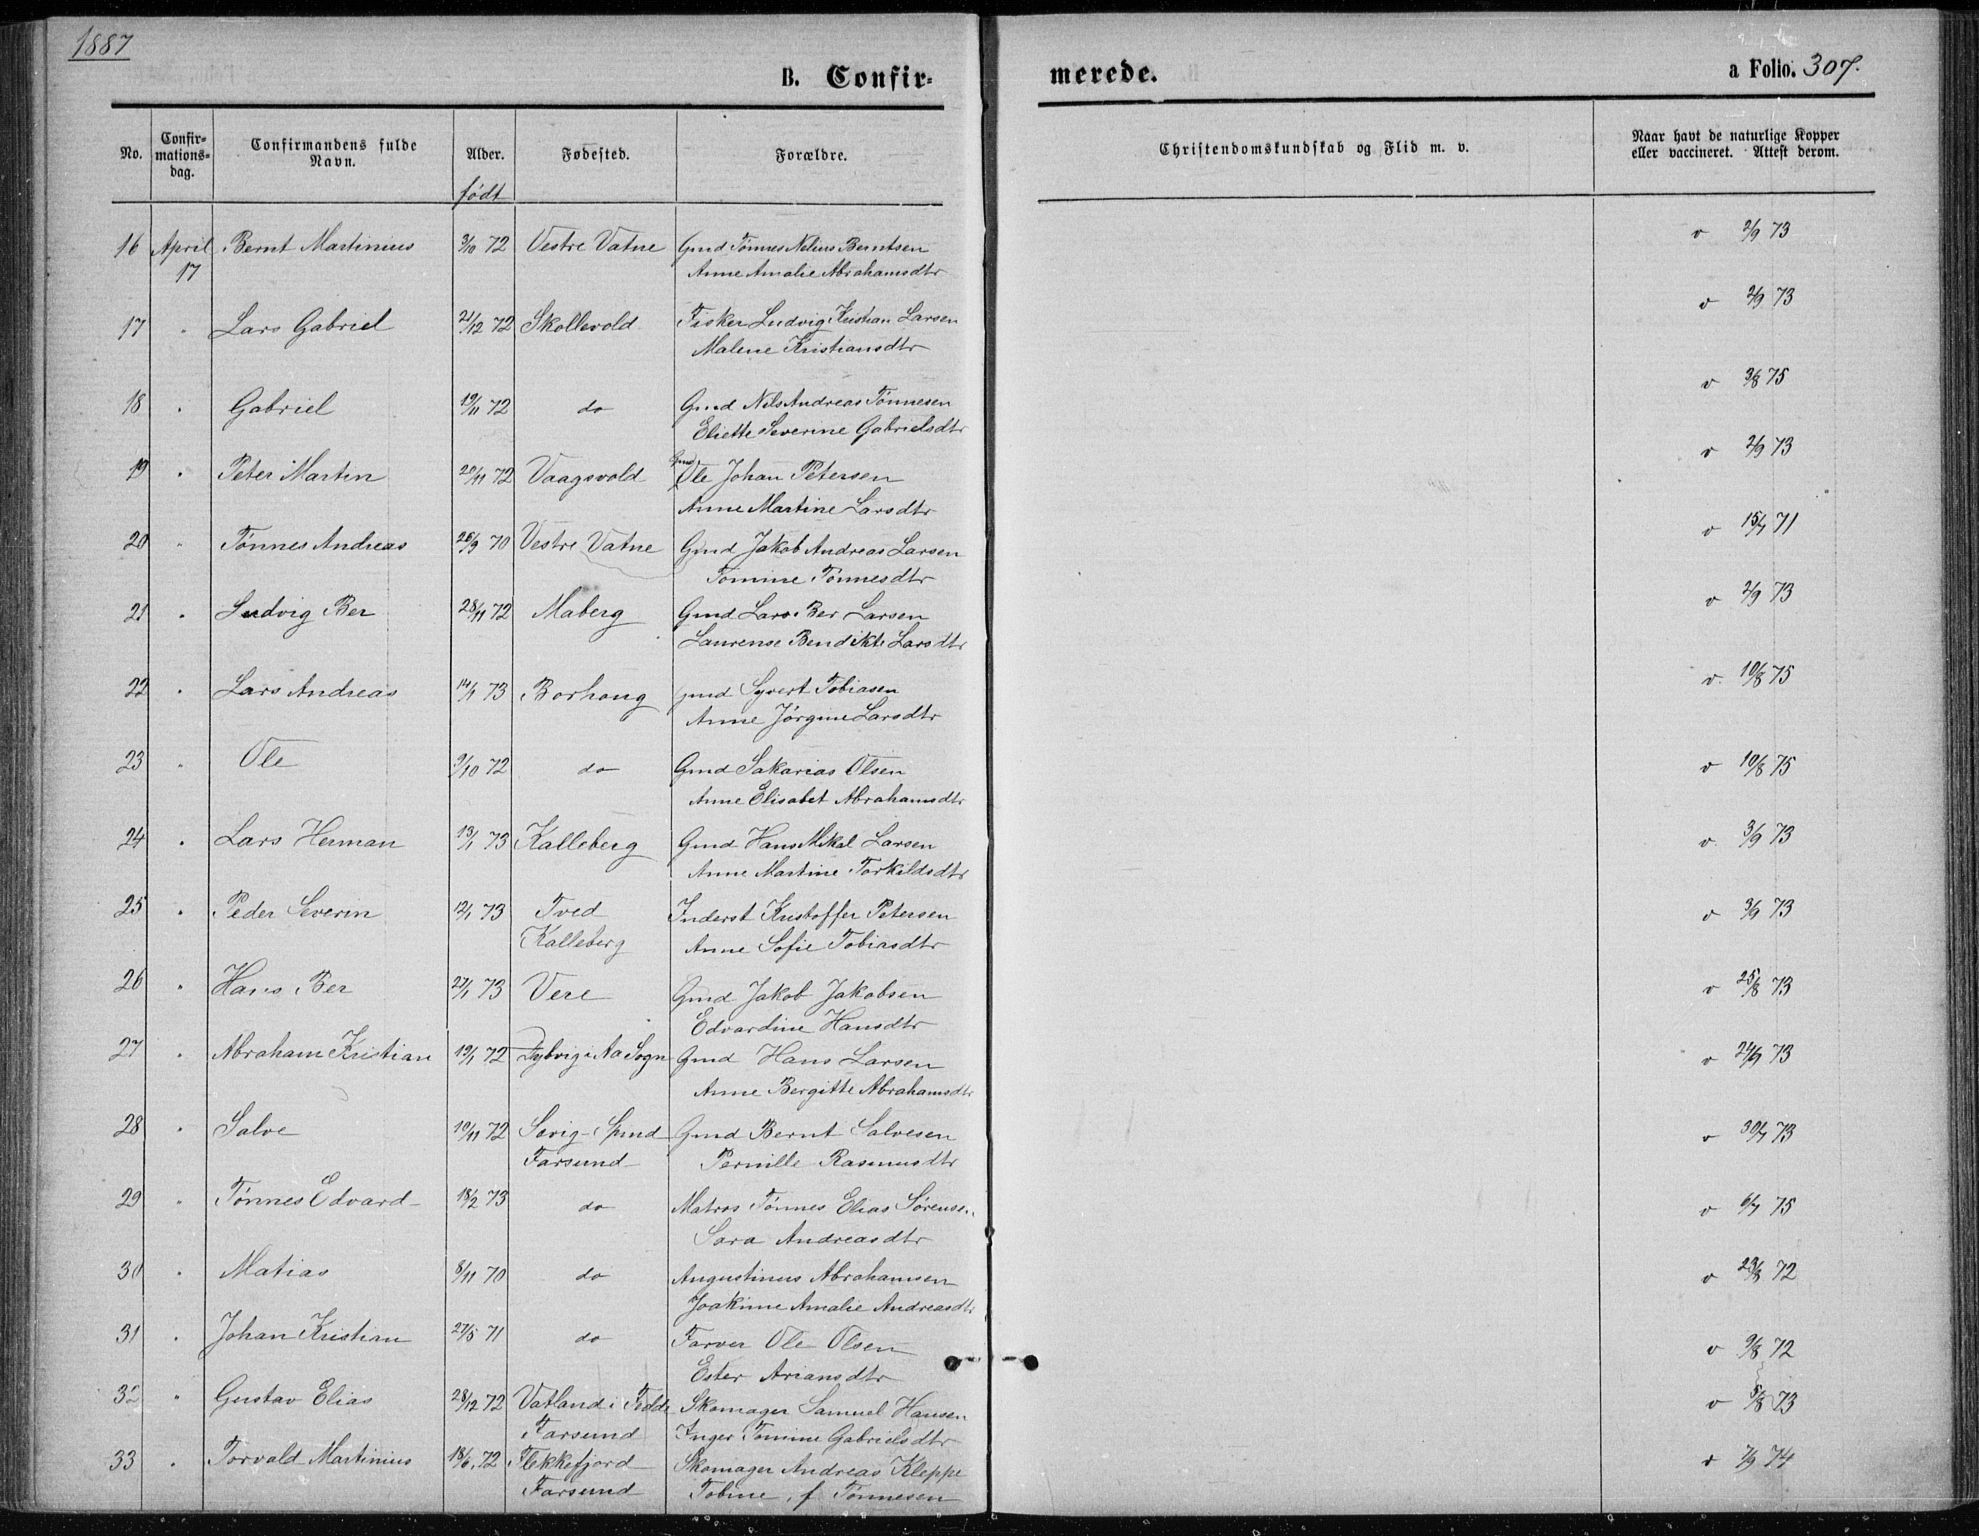 1887
B. Confir-
merede.
a Folio. 307.
No.
Confir-
mations-
dag.
Confirmandens fulde
Navn.
Alder.
født
Fødested.
Forældre.
Christendomskundskab og Flid m. v.
Naar havt de naturlige Kopper
eller vaccineret. Attest derom.
16 April Bernt Martinius 3/10 72 Vestre Vatne Gmd Tønnes Nelius Berntsen v 2/9 73
17 Anne Amalie Abrahamsdtr
17 " Lars Gabriel 21/12 72 Skollevold Fisker Ludvig Kristian Larsen v 2/9 73
Malene Kristiansdtr
18 " Gabriel 19/11 72 do Gmd Nels Andreas Tønnesen v 3/8 75
Eliette Severine Gabrielsdtr
19 " Peter Martin 20/11 72 Vaagsvold Gmd Ole Johan Petersen v 2/9 73
Anne Martine Larsdtr
20 " Tønnes Andreas 26/9 70 Vestre Vatne Gmd Jakob Andreas Larsen v 15/7 71
Tomine Tønnesdtr
21 " Ludvig Ber 28/11 72 Maberg Gmd Lars Ber Larsen v 2/9 73
Laurense Bendikte Larsdtr
22 " Lars Andreas 14/1 73 Borhaug gmd Syvert Tobiasen v. 10/8 75
Anne Jørgine Larsdtr
23 " Ole 9/10 72 do Gmd Sakarias Olsen v 10/8 75
Anne Elisabet Abrahamsdtr
24 " Lars Herman 13/1 73 Kalleberg Gmd Hans Mikal Larsen v. 3/9 73
Anne Martine Torkildsdtr
25 " Peder Severin 12/1 73 Tved Inderst Kristoffer Petersen v 3/9 73
Kalleberg Anne Sofie Tobiasdtr
26 " Hans Ber 27/1 73 Vere Gmd Jakob Jakobsen v 25/8 73
Edvardine Hansdtr
27 " Abraham Kristian 19/1 72 Dybvig i Aa Sogn Gmd Hans Larsen v 21/9 73
Anne Bergitte Abrahamsdtr
28 " Salve 10/11 72 Sævig i Spind Gmd Bernt Salvesen v 30/7 73
Farsund Pernille Rasmusdtr
29 " Tønnes Edvard 18/2 73 do Matros Tønnes Elias Sørens. v 6/7 75
Sara Andreasdtr
30 " Matias 8/11 70 do Augustinus Abrahamsen v 23/8 72
Joakime Amalie Andreasdtr
31 " Johan Kristian 27/5 71 do Farver Ole Olsen v 9/8 72
Ester Ariansdtr
32 " Gustav Elias 28/12 72 Vatland i Fedde Skomager Samuel Hansen v 5/8 73
Farsund Inger Tomine Gabrielsdtr
33 " Torvald Martinius 18/6 72 Flekkefjord Skomager Andreas Kleppe v 7/9 74
Farsund Tobine f. Tønnesen